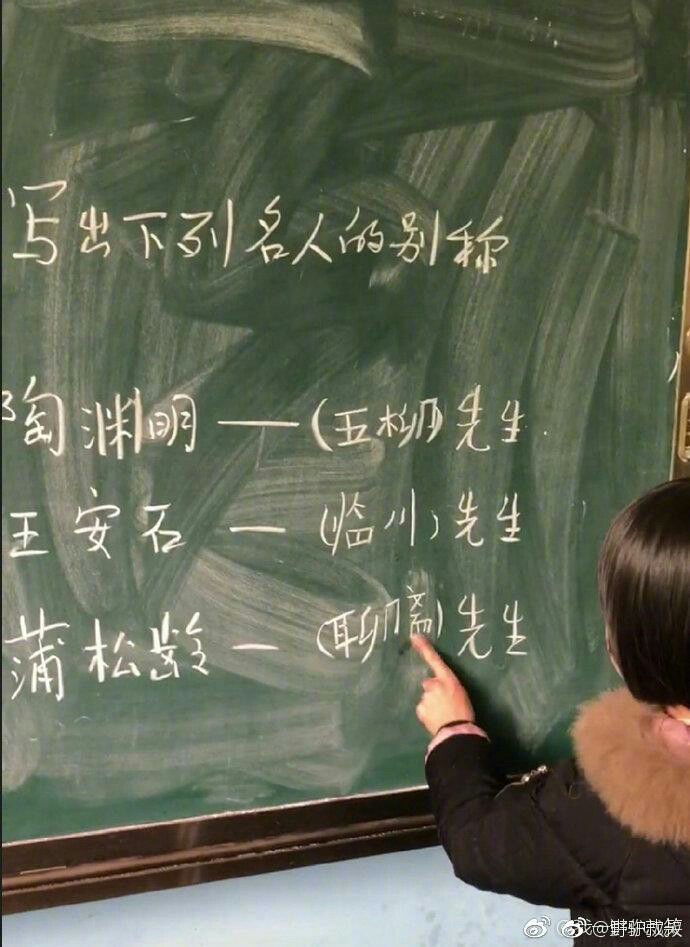 写出下列名人的别称
陶渊明——(五柳)先生
王安石—(临川)先生
蒲松龄—(聊斋)先生